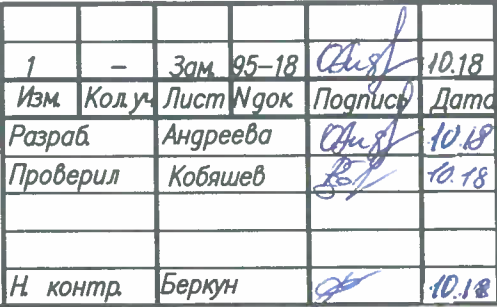 1 – Зам. 95-18 10.18
Изм. Кол.уч Лист Nдок Подпись Дата
Разраб. Андреева 10.18
Проверил Кобяшев 10.18
Н. контр. Беркун 10.18